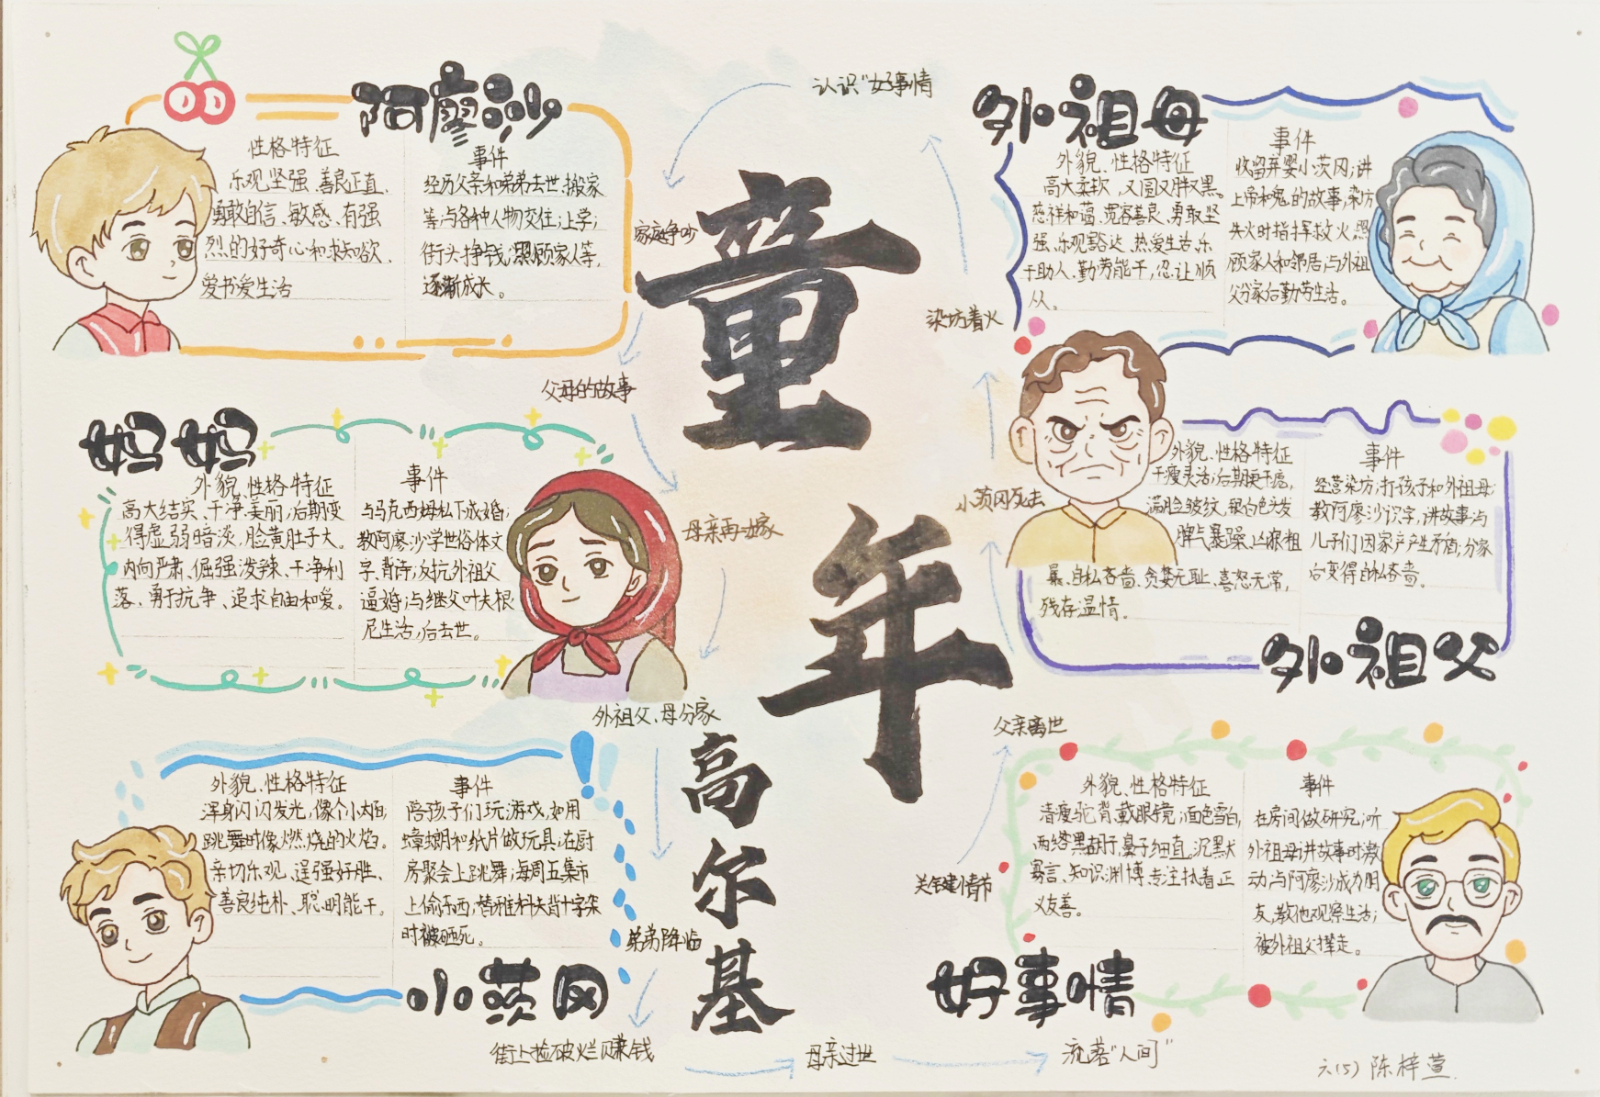 童年
高尔基
阿廖沙
性格特征
乐观坚强、善良正直、
勇敢自信、敏感、有强
烈的好奇心和求知欲、
爱书爱生活
事件
经历父亲和弟弟去世、搬家
等;与各种人物交往;上学;
街头挣钱;照顾家人等,
逐渐成长。
妈妈
外貌、性格特征
高大结实、干净美丽;后期变
得虚弱暗淡,脸黄肚子大。
内向严肃、倔强泼辣、干净利
落、勇于抗争、追求自由和爱。
事件
与马克西姆私下成婚;
教阿廖沙学世俗体文
字、背诗;反抗外祖父
逼婚;与继父叶夫根
尼生活,后去世。
小茨冈
外貌、性格特征
浑身闪闪发光,像个小太阳
跳舞时像燃烧的火焰。
亲切乐观、逞强好胜、
善良纯朴、聪明能干。
事件
陪孩子们玩游戏,如用
蟑螂和纸片做玩具;在厨
房聚会上跳舞;每周五集市
上偷东西,替雅科夫背十字架
时被砸死。
外祖母
外貌、性格特征
高大柔软、又圆又胖又黑。
慈祥和蔼、宽容善良、勇敢坚
强、乐观豁达、热爱生活、乐
于助人、勤劳能干、忍让顺
从。
事件
收留弃婴小茨冈;讲
上帝和鬼的故事;染坊
失火时指挥救火;照
顾家人和邻居;与外祖
父分家后勤劳生活。
外祖父
外貌、性格特征
干瘦灵活;后期更干瘪,
满脸皱纹,银白色头发
脾气暴躁、凶狠粗
暴、自私吝啬、贪婪无耻、喜怒无常,
残存温情。
事件
经营染坊;打孩子和外祖母;
教阿廖沙识字,讲故事;与
儿子们因家产产生矛盾;分家
后变得自私吝啬。
好事情
外貌、性格特征
清瘦驼背、戴眼镜;面色雪白,
两绺黑胡子,鼻子细直。沉默
寡言、知识渊博、专注执着、正
义友善。
事件
在房间做研究;听
外祖母讲故事时激
动;与阿廖沙成为朋
友,教他观察生活;
被外祖父撵走。
关键情节
父亲离世
小茨冈死去
染坊着火
认识“好事情”
家庭争吵
父母的故事
母亲再嫁
外祖父、母分家
弟弟降临
街上捡破烂赚钱
母亲过世
流落“人间”
六(5) 陈梓萱